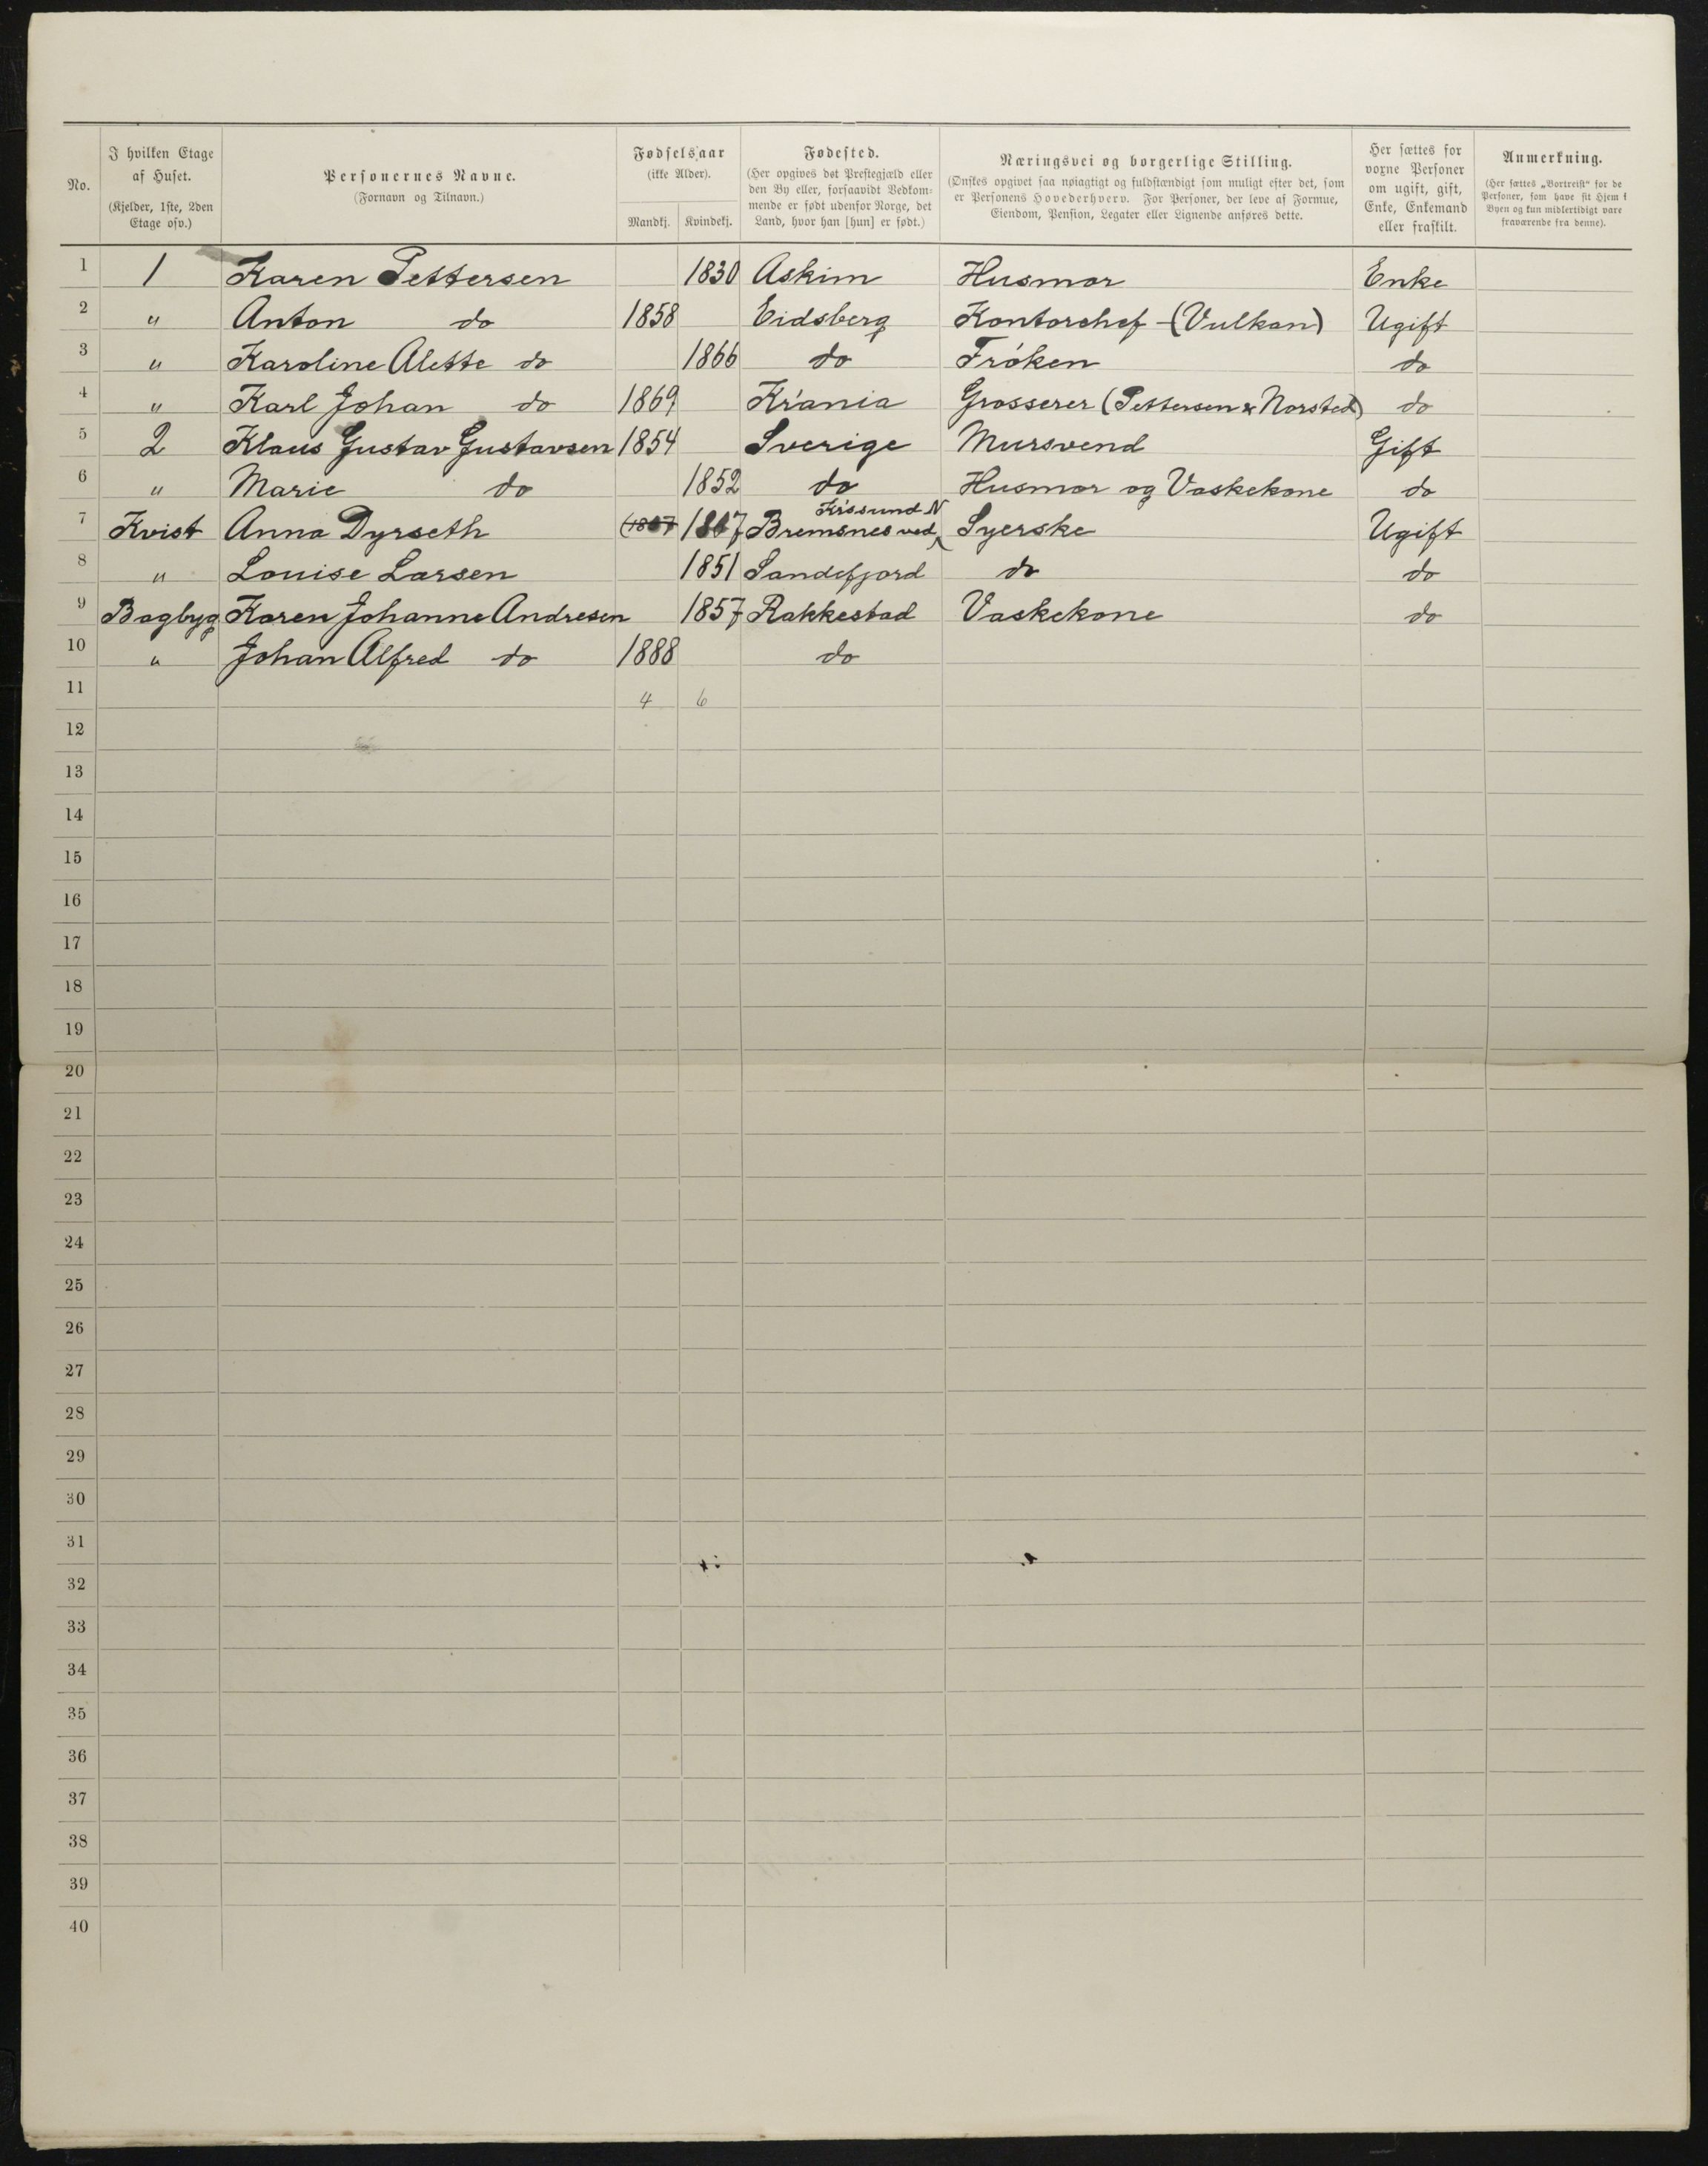 No.
I hvilken Etage
af Huset.
(Kjelder, 1ste, 2den
Etage osv.)
Personernes Navne.
(Fornavn og Tilnavn.)
Fødselsaar
(ikke Alder).
Mandkj. Kvindekj.
Fødested.
(Her opgives det Præstegjæld eller
den By eller, forsaavidt Vedkom-
mende er født udenfor Norge, det
Land, hvor han [hun] er født.)
Næringsvei og borgerlige Stilling.
(Ønskes opgivet saa nøiagtigt og fuldstændigt som muligt efter det, som
er Personens Hovederhverv. For Personer, der leve af Formue,
Eiendom, Pension, Legater eller Lignende anføres dette.
Her sættes for
voxne Personer
om ugift, gift,
Enke, Enkemand
eller fraskilt.
Anmerkning.
(Her sættes „Bortreist“ for de
Personer, som have sit Hjem i
Byen og kun midlertidigt vare
fraværende fra denne).
1 1 Karen Pettersen 1830 Askim Husmor Enke
2 " Anton do 1858 Eidsberg Kontorchef (Vulkan) Ugift
3 " Karoline Alette do 1866 do Frøken do
4 " Karl Johan do 1869 Kr'ania Grosserer (Pettersen & Norsted) do
5 2 Klaus Gustav Gustavsen 1854 Sverige Mursvend Gift
6 " Marie do 1852 do Husmor og Vaskekone do
Kr'ssund N
7 Kvist Anna Dyrseth Bremsnes ved Syerske Ugift
8 " Louise Larsen 1851 Sandefjord do do
9 Bagbyg Karen Johanne Andresen 1857 Rakkestad Vaskekone do
10 " Johan Alfred do 1888 do
11 4 6
12
13
14
15
16
17
18
19
20
21
22
23
24
25
26
27
28
29
30
31
32
33
34
35
36
37
38
39
40